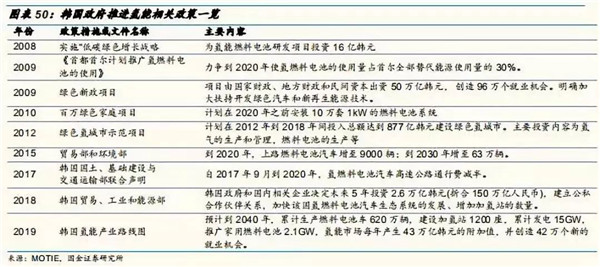 图表 50：韩国政府推进氢能相关政策一览
年份 政策措施或文件名称 主要内容
2008 实施“低碳绿色增长战略 为氢能燃料电池研发项目投资 16 亿韩元
2009 《首都首尔计划推广氢燃料电
池的使用》 力争到 2020 年使氢燃料电池的使用量占首尔全部替代能源使用量的 30%。
2009 绿色新政项目 项目由国家财政、地方财政和民间资本出资 50 万亿韩元，创造 96 万个就业机会。明确加
大扶持开发绿色汽车和新再生能源技术。
2010 百万绿色家庭项目 计划在 2020 年之前安装 10 万套 1kW 的燃料电池系统
2012 绿色氢城市示范项目 计划在 2012 年到 2018 年间投入总额达到 877 亿韩元建设绿色氢城市。主要投资内容为氢
气的生产和管理，燃料电池的生产等
2015 贸易部和环境部 到 2020 年，上路燃料电池汽车增至 9000 辆；到 2030 年增至 63 万辆。
2017 韩国国土、基础建设与
交通运输部联合声明 自 2017 年 9 月到 2020 年，氢燃料电池汽车高速公路通行费减半。
2018 韩国贸易、工业和能源部 韩国政府和国内相关企业决定未来 5 年投资 2.6 万亿韩元(折合 150 万亿人民币)，建立公私
合作伙伴关系，加快该国氢燃料电池汽车生态系统的发展、增加加氢站的数量。
2019 韩国氢能产业路线图 预计到 2040 年，累计生产燃料电池车 620 万辆，建设加氢站 1200 座，累计发电 15GW，
推广家用燃料电池 2.1GW，氢能市场每年产生 43 万亿韩元的附加值，并创造 42 万个新的
就业机会。
来源：MOTIE，国金证券研究所